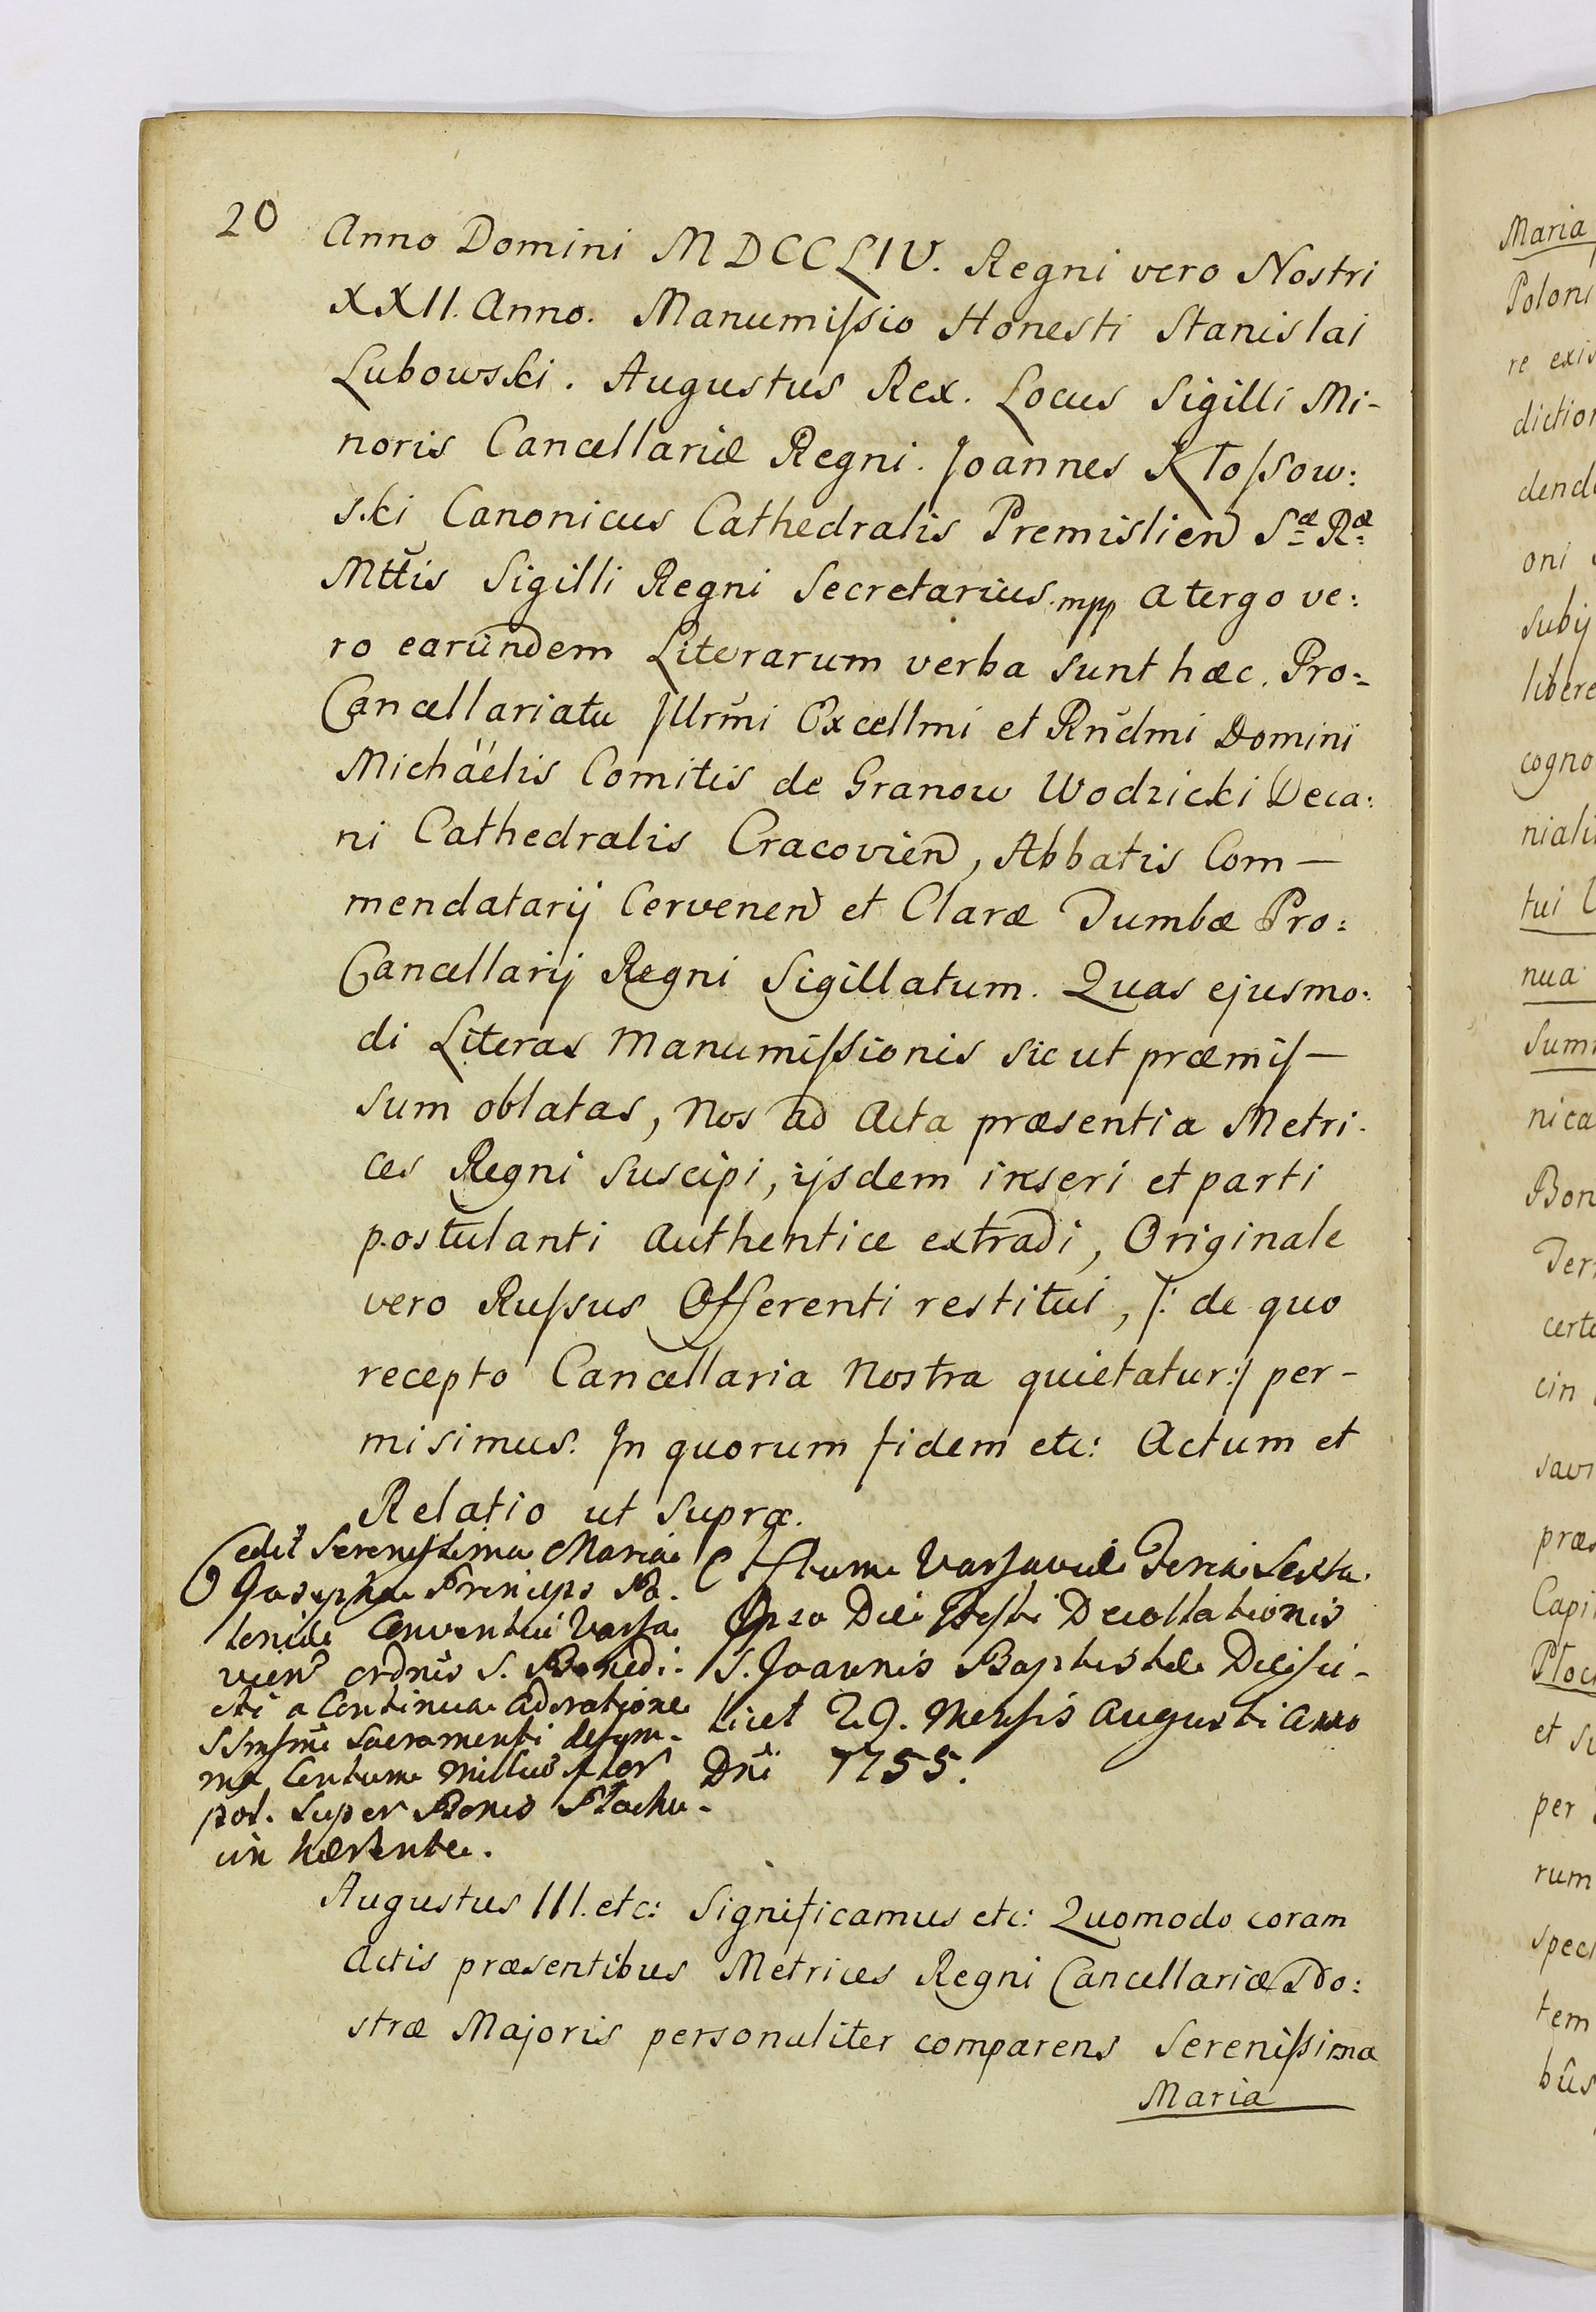 20
Anno Domini MDCCLIV. Regni vero Nostri
XXII. Anno. Manumiſsio Honesti Stanislai
Lubowski. Augustus Rex. Locus Sigilli Mi-
noris Cancellariæ Regni. Joannes Kłoſsow:
ski Canonicus Cathedralis Premislien Sæ Ræ
Mttis Sigilli Regni Secretarius. mpp A tergo ve:
ro earundem Literarum verba sunt hæc. Pro-
Cancellariatu Jllrmi Excellmi et Rndmi Domini
Michäelis Comitis de Granow Wodzicki Deca:
ni Cathedralis Cracovien, Abbatis Com-
mendatarij Cervenen et Claræ Tumbæ Pro:
Cancellarij Regni Sigillatum. Quas ejusmo:
di Literas Manumiſsionis sicut præmiſ-
sum oblatas, Nos ad Acta præsentia Metri-
ces Regni suscipi, ijsdem inseri et parti
postulanti authentice extradi, Originale
vero Ruſsus Offerenti restitui, /: de quo
recepto Cancellaria Nostra quietatur :/ per-
misimus. Jn quorum fidem etc: Actum et
Relatio ut supra.
Cedit Sereniſsima Maria
Josepha Princeps Po-
loniæ Conventui Varsa
vien ordnis S. Benedi-
cti a Continua adoratione
SSmi Sacramenti de sum-
ma Centum Millium flor
pol. super Bonis Płochu-
cin hærente.
Actum Varsaviæ Feria Sexta
Ipso Die Festi Decollationis
S. Joannis Baptistæ Die sci-
licet 29. Mensis Augusti Anno
Dni 1755.
Augustus III. etc: Significamus etc: Quomodo coram
Actis præsentibus Metrices Regni Cancellariæ No:
stræ Majoris personaliter comparens Sereniſsima
Maria
Maria
Poloni
re exis
diction
dend
oni
subij
libere
cogno
niali
tui
nua
Sum
nica
Bon
Ter
cert
cin
savi
præ
Capi
Płoc
et su
per
rum
spec
tem
bus